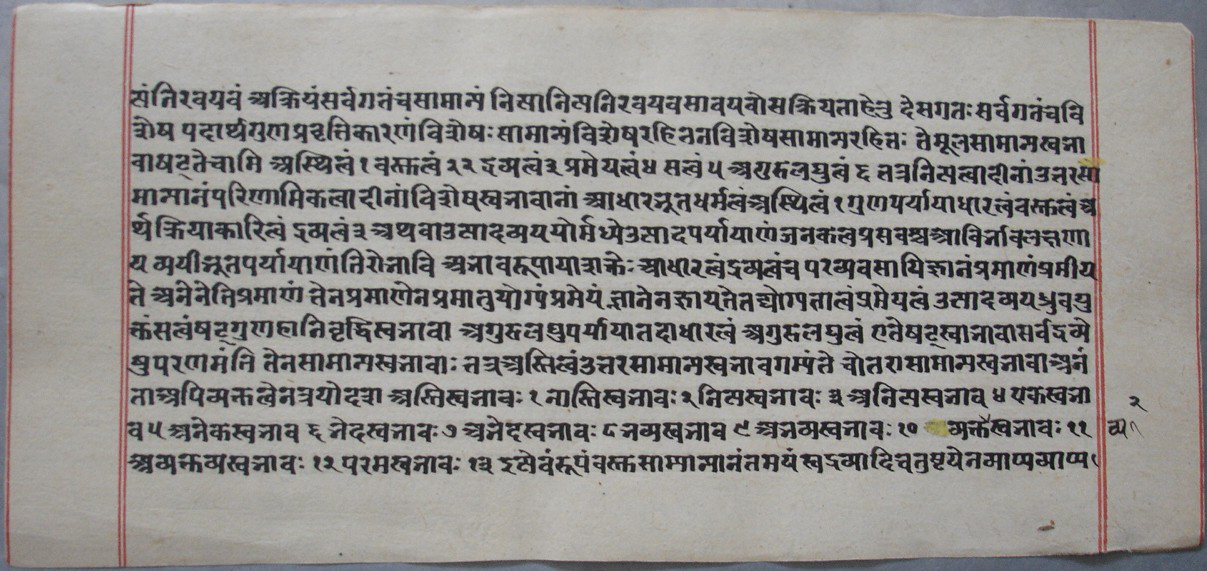 त्यंनिरवयवं अक्रियंसर्वगतंचसामान्यं नित्यानित्यनिरवयवसावयवोसक्रियताहेतु देसगतः सर्वगतंचवि
शेष पदार्थगुणप्रवृत्तिकारणंविशेषः सामान्यंविशेषरहितंनविशेषसामान्यरहितः तेमूलसामान्यस्वभा
वाषट्तेचामि अस्थित्वं १ वस्तुत्वं २ २ द्रव्यत्वं ३ प्रमेयत्वं ४ सत्वं ५ अगुरुलघुत्वं ६ तत्रनित्यत्वादीनांउत्तरसा
मान्यानंपरिणामिकत्वादीनांविशेषस्वभावानां आधारभूतधर्मत्वंअस्थित्वं १ गुणपर्यायाधारत्वंवस्तुत्वं अ
र्थक्रियाकारित्वं द्रव्यत्वं ३ अथवाउत्पादव्यययोर्मध्येउत्पादपर्यायाणंजनकत्वप्रसवश्चआविर्भावलक्षणा
य व्ययीभूतपर्यायाणंतिरोभावि अभावरूपायाशक्तेः आधारत्वंद्रव्यत्वंच परव्यवसायिज्ञानंप्रमाणंप्रमीय
ते अनेनेतिप्रमाणं तेनप्रमाणेनप्रमातुयोग्यंप्रमेयं ज्ञानेनज्ञायतेतद्योग्यतात्वंप्रमेयत्वं उत्पादव्ययध्रुवयु
क्तंसत्वंषट्गुणहानिवृद्धिस्वभावा अगुरुलघुपर्यायातदाधारत्वं अगुरुलघुत्वं एतेषट्स्वाभावासर्वद्रव्ये
षुपरणमंति तेनसामान्यस्वभावाः तत्रअस्तित्वंउत्तरसामान्यस्वभावगम्यंते चोतरासामान्यस्वभावाअनं
ताअपिव्यक्तत्वेनत्रयोदश अस्तिस्वभावः १ नास्तिस्वभावः २ नित्यस्वभावः ३ अनित्यस्वभाव ४ एकस्वभा
व ५ अनेकस्वभाव ६ भेदस्वभावः ७ अभेदस्वभावः ८ भव्यस्वभाव ९ अभव्यस्वभावः १० व्यक्तस्वभावः ११
अव्यक्तव्यस्वभावः १२ परमस्वभावः १३ इत्येवंरूपंवस्तुसामान्यानंतमयं स्वद्रव्यादिचतुष्टयेनव्याप्यव्याप्य